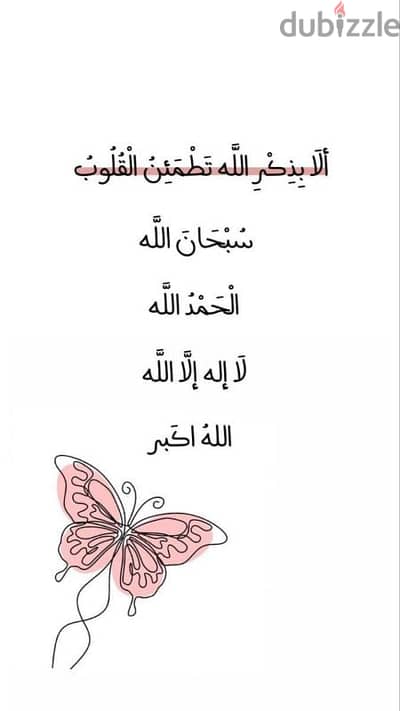 dubizzle
ألَا بِذِكْرِ اللَّه تَطْمَئِنُ الْقُلُوبُ
سُبْحَانَ اللَّه
الْحَمْدُ اللَّه
لَا إله إلَّا اللَّه
اللهُ اكَبر